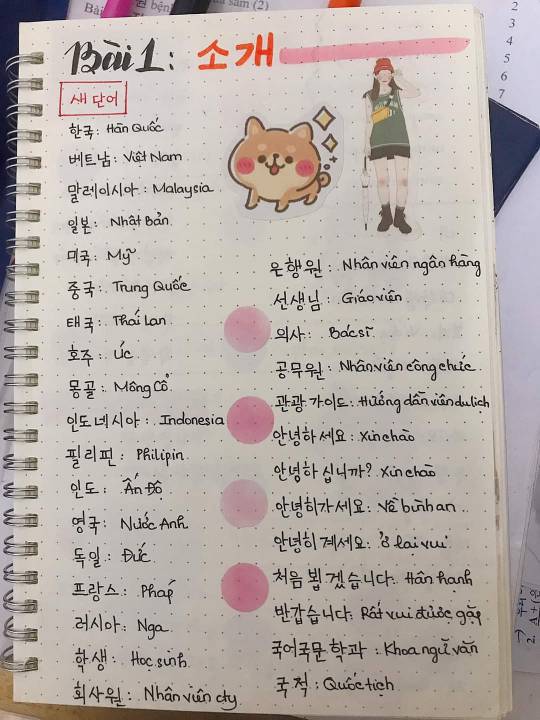 Bài 1: 소개
새 단어
한국: Hàn Quốc
베트남: Việt Nam
말레이시아: Malaysia
일본: Nhật Bản
미국: Mỹ
중국: Trung Quốc
태국: Thái Lan
호주: Úc
몽골: Mông Cổ
인도네시아: Indonesia
필리핀: Philipin
인도: Ấn Độ
영국: Nước Anh
독일: Đức
프랑스: Pháp
러시아: Nga
학생: Học sinh
회사원: Nhân viên cty
은행원: Nhân viên ngân hàng
선생님: Giáo viên
의사: Bác sĩ
공무원: Nhân viên công chức
관광 가이드: Hướng dẫn viên du lịch
안녕하세요: Xin chào
안녕하십니까? Xin chào
안녕히가세요: Về bình an
안녕히 계세요: ở lại vui
처음 뵙겠습니다. Hân hạnh
반갑습니다: Rất vui được gặp
국어국문학과: Khoa ngữ văn
국적: Quốc tịch
2
3
4
5
6
7